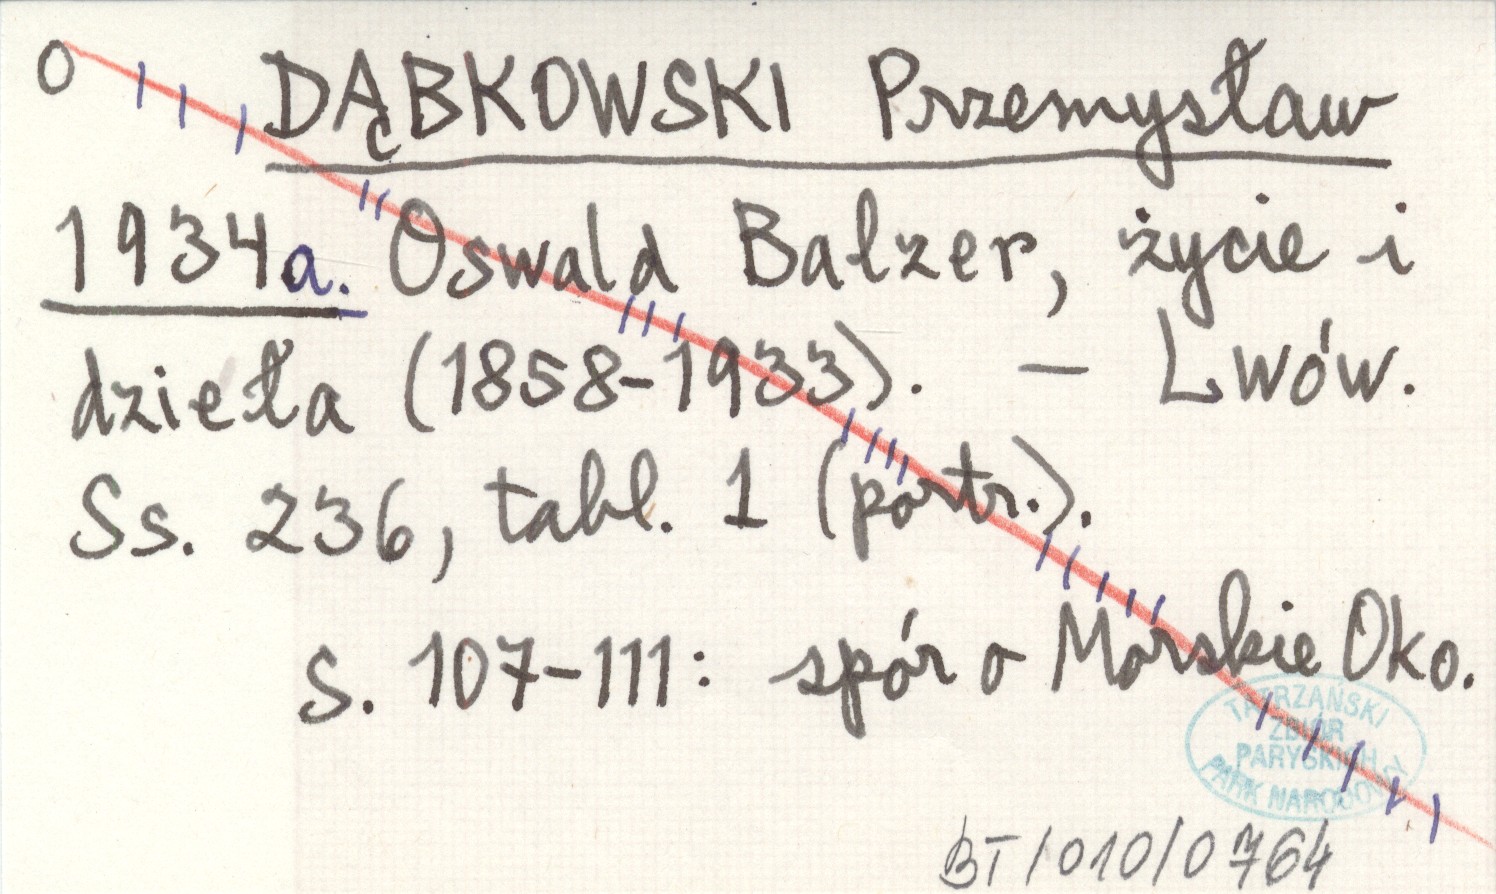 O DĄBKOWSKI Przemysław
1934a. Oswald Balzer, życie i
dzieła (1858-1933). — Lwów.
Ss. 236, tabl. 1 (portr.).
s. 107-111: spór o Morskie Oko.
TATRZAŃSKI
ZBIÓR
PARYSKICH
PARK NARODOWY
BT/010/0764